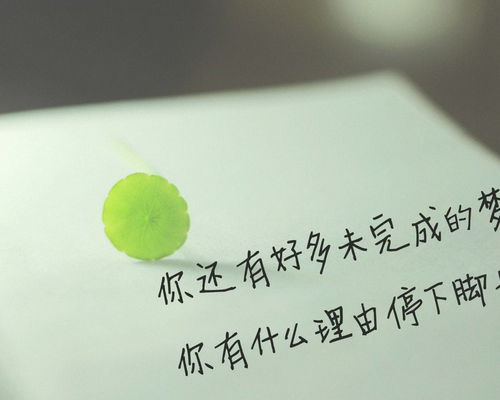 你还有好多未完成的梦
你有什么理由停下脚